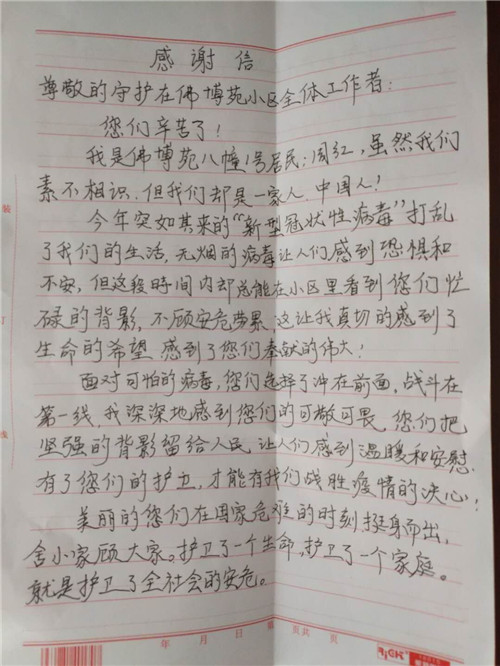 感谢信
尊敬的守护在佛博苑小区全体工作者:
您们辛苦了!
我是佛博苑八幢1号居民:周红,虽然我们
素不相识.但我们都是一家人.中国人!
今年突如其来的“新型冠状性病毒”打乱
了我们的生活,无烟的病毒让人们感到恐惧和
不安,但这段时间内却总能在小区里看到您们忙
碌的背影,不顾安危劳累.这让我真切的感到了
生命的希望.感到了您们奉献的伟大!
面对可怕的病毒,您们选择了冲在前面,战斗在
第一线.我深深地感到您们的可敬可畏.您们把
坚强的背影留给人民.让人们感到温暖和安慰.
有了您们的护卫,才能有我们战胜疫情的决心!
美丽的您们在国家危难的时刻挺身而出,
舍小家顾大家。护卫了一个生命,护卫了一个家庭。
就是护卫了全社会的安危。
装
订
线
年 月 日 第 页共 页